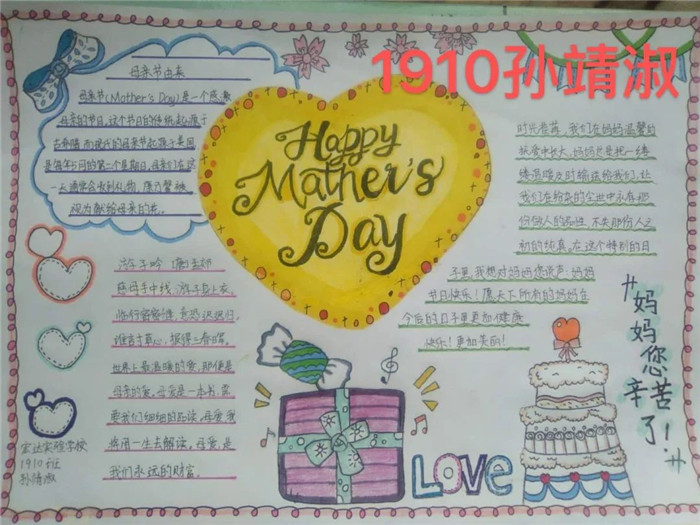 1910孙靖淑
母亲节由来
母亲节(Mother's Day)是一个感恩
母亲的节日,这个节日的传统起源于
古希腊而现代的母亲节起源于美国
是每年5月的第二个星期日,母亲们在这
一天通常会收到礼物,康乃馨被
视为献给母亲的花。
Happy
Mather's
Day
时光荏苒,我们在妈妈温馨的
我们在纷杂的尘世中永存那
份做人的
初的纯真,在这个特别的日
子里,我想对妈妈您说声:妈妈
节日快乐!愿天下所有的妈妈在
今后的日子里更加健康
快乐!更加美丽!
游子吟 (唐)孟郊
慈母手中线,游子身上衣,
临行密密缝,意恐迟迟归。
谁言寸草心,报得三春晖。
世界上最温暖的爱,那便是
母亲的爱。母爱是一本书,需
要我们细细的品读。母爱,我
将用一生去解读。母爱,是
我们永远的财富。
宏达实验学校
1910班
孙靖淑
LOVE
妈妈您
辛苦了!